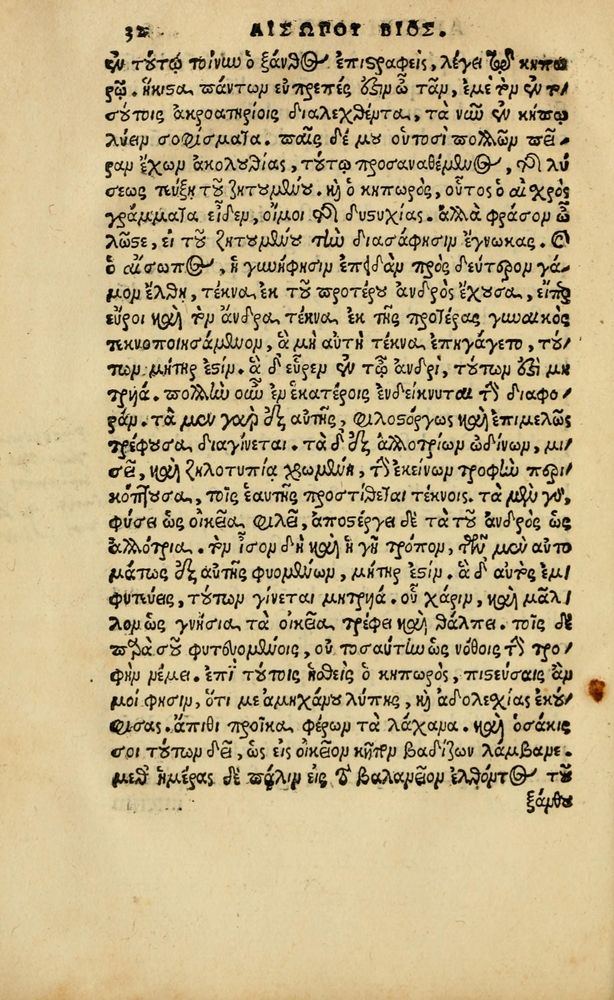 32 ΑΙΣΩΠΟΥ ΒΙΟΣ.
ἐν τούτῳ τοίνυν ὁ ξάνθος ἐπιστραφεὶς, λέγει τῷ κηπω
ρῷ. ἥκιστα πάντων εὐπρεπές ἐστιν ὦ τᾶν, ἐμὲ τὸν ἐν το
σούτοις ἀκροατηρίοις διαλεχθέντα, τὰ νῦν ἐν κήπῳ
λύειν σοφίσματα. παῖς δέ μου οὑτοσὶ πολλῶν πεῖ
ραν ἔχων ἀκολουθίας, τούτῳ προσαναθέμενος, τῆς λύ
σεως τεύξῃ τοῦ ζητουμένου. καὶ ὁ κηπωρός, οὗτος ὁ αἰσχρὸς
γράμματα εἶδεν, οἴμοι τῆς δυστυχίας. ἀλλὰ φράσον ὦ
λῷστε, εἰ τοῦ ζητουμένου τὴν διασάφησιν ἔγνωκας. καὶ
ὁ αἴσωπος, ἡ γυνή φησιν ἐπειδὰν πρὸς δεύτερον γά
μον ἔλθῃ, τέκνα ἐκ τοῦ προτέρου ἀνδρὸς ἔχουσα, εἴπερ
εὕροι καὶ τὸν ἄνδρα τέκνα ἐκ τῆς προτέρας γυναικὸς
τεκνοποιησάμενον, ἃ μὴ αὐτὴ τέκνα ἐπηγάγετο, τού
των μήτηρ ἐστίν. ἃ δ' εὗρεν ἐν τῷ ἀνδρὶ, τούτων ἐστὶ μη
τρυιά. πολλὴν οὖν ἐν ἑκατέροις ἐνδείκνυται τὴν διαφο
ράν. τὰ μὲν γὰρ ἐξ αὐτῆς, φιλοστόργως καὶ ἐπιμελῶς
τρέφουσα διαγίνεται. τὰ δ' ἐξ ἀλλοτρίων ὠδίνων, μι
σεῖ, καὶ ζηλοτυπίᾳ χρωμένη, τὴν ἐκείνων τροφὴν περι
κόπτουσα, τοῖς ἑαυτῆς προστίθεται τέκνοις. τὰ μὲν γὰρ,
φύσει ὡς οἰκεῖα φιλεῖ, ἀποστέργει δὲ τὰ τοῦ ἀνδρὸς ὡς
ἀλλότρια. τὸν ἴσον δὴ καὶ ἡ γῆ τρόπον, τῶν μὲν αὐτο
μάτως ἐξ αὐτῆς φυομένων, μήτηρ ἐστίν. ἃ δ' αὐτὸς ἐμ
φυτεύεις, τούτων γίνεται μητρυιά. οὗ χάριν, καὶ μᾶλ
λον ὡς γνήσια τὰ οἰκεῖα τρέφει καὶ θάλπει. τοῖς δὲ
παρὰ σοῦ φυτευομένοις, οὐ τοσαύτην ὡς νόθοις τὴν τρο
φὴν νέμει. ἐπὶ τούτοις ἡσθεὶς ὁ κηπωρός, πιστεύσαις ἄν
μοί φησιν, ὅτι με ἀμηχάνου λύπης, καὶ ἀδολεχίας ἐκού
φισας. ἄπιθι προῖκα φέρων τὰ λάχανα. καὶ ὁσάκις
σοι τούτων δεῖ, ὡς εἰς οἰκεῖον κῆπον βαδίζων λάμβανε.
μεθ' ἡμέρας δὲ πάλιν εἰς τὸ βαλανεῖον ἐλθόντος τοῦ
ξάνθου